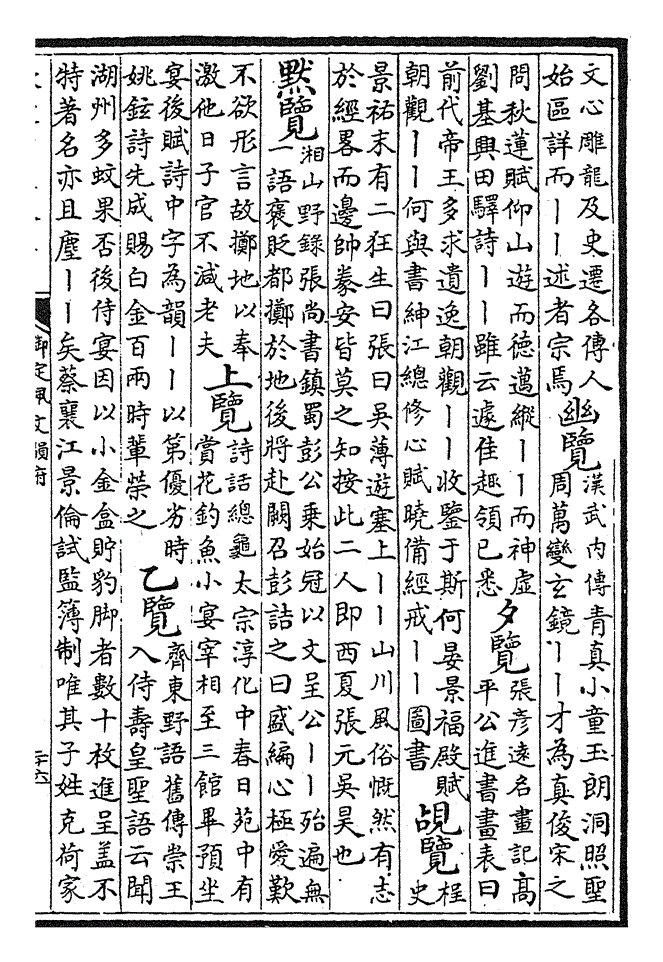 文心雕龍及史遷各傳人
始區詳而丨丨述者宗焉
幽覽
漢武内傳青真小童玉朗洞照聖
周萬變玄鏡丨丨才為真俊宋之
問秋蓮賦仰山遊而德邁縱丨丨而神虛
劉基興田驛詩丨丨雖云遽佳趣領已悉
夕覽
張彦遠名畫記高
平公進書畫表曰
前代帝王多求遺逸朝觀丨丨收鑒于斯何晏景福殿賦
朝觀丨丨何與書紳江總修心賦曉備經戒丨丨圖書
覘覽
桯
史
景祐末有二狂生曰張曰吳薄遊塞上丨丨山川風俗慨然有志
於經畧而邊帥豢安皆莫之知按此二人即西夏張元吳昊也
默覽
湘山野錄張尚書鎮蜀彭公乗始冠以文呈公丨丨殆遍無
一語褒貶都擲於地後將赴闕召彭詰之曰盛編心極愛歎
不欲形言故擲地以奉
激他日子官不減老夫
上覽
詩話總龜太宗淳化中春日苑中有
賞花釣魚小宴宰相至三館畢預坐
宴後賦詩中字為韻丨丨以第優劣時
姚鉉詩先成賜白金百兩時輩榮之
乙覽
齊東野語舊傳崇王
入侍壽皇聖語云聞
湖州多蚊果否後侍宴因以小金盒貯豹脚者數十枚進呈蓋不
特著名亦且塵丨丨矣蔡襄江景倫試監簿制唯其子姓克荷家
御定佩文韻府